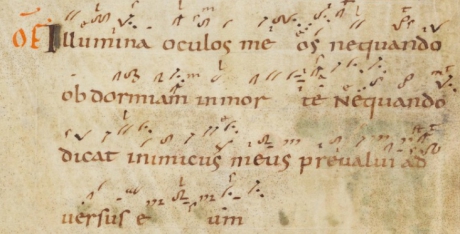 OF Illumina oculos me os nequando
obdormiam inmor te Nequando
dicat inimicus meus prevalui ad
versus e um